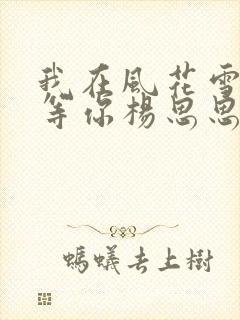 我在風花雪
等你楊思思
螞蟻去上樹